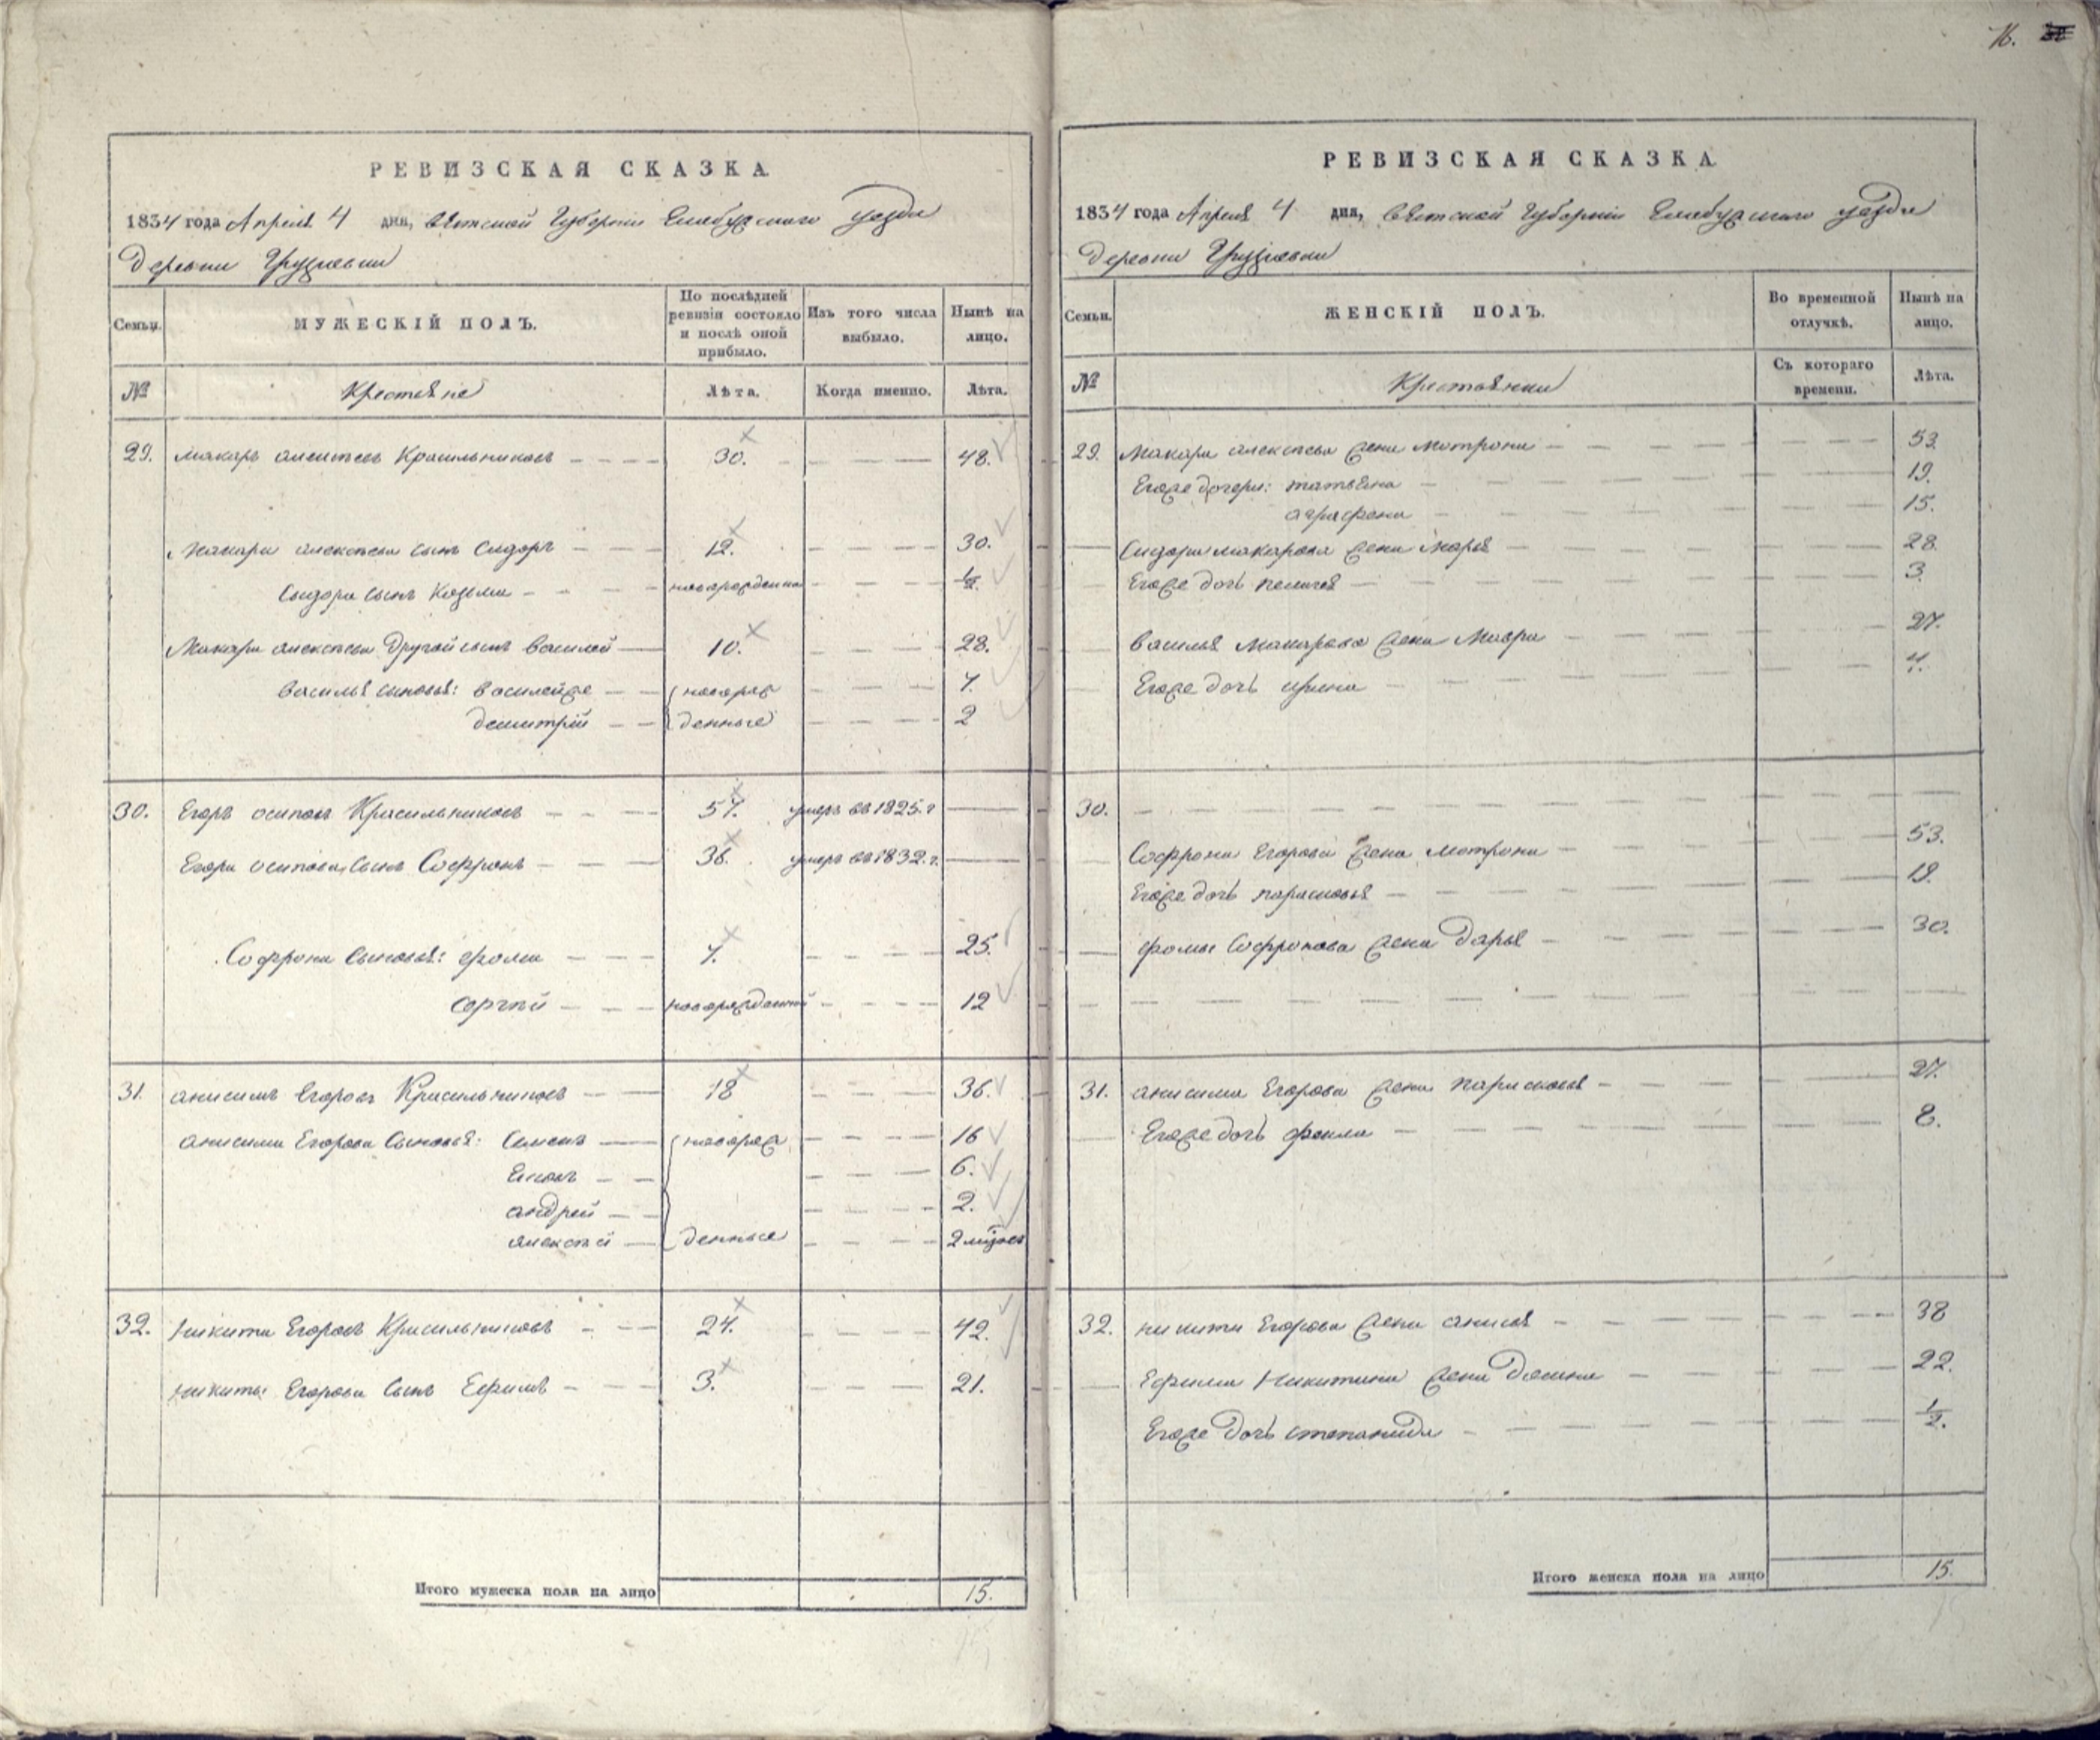 16.
РЕВИЗСКАЯ СКАЗКА
1834 года Апреля 4 дня, Вятской Губернии Елабужскаго уезда
Деревни
Семьи.
МУЖЕСКІЙ ПОЛЪ.
По послѣдней ревизіи состояло и послѣ оной прибыло.
Изъ того числа выбыло.
Нынѣ на лицо.
№
Крестьяне
Лѣта.
Когда именно.
Лѣта.
29. Макаръ алексѣевъ Красильниковъ 30. 48.
Макара алексѣева сынъ Сидоръ 12. 30.
Сидора сынъ Козьма новорожденный 1/2
Макара алексѣева другой сынъ Василей 10. 28.
Василья сыновья: Василей же новорож 7.
Дмитрій денные 2
30. Егоръ осиповъ Красильниковъ 57. умеръ въ 1825. г
Егора осипова сынъ Софронъ 36. умеръ въ 1832. г.
Софрона сыновья: фома 7. 25.
сергѣй новорожденный 12
31. анисимъ Егоровъ Красильниковъ 18 36.
анисима Егорова сыновья: Семенъ новорож 16
6.
андрей 2.
алексѣй денные 2 мѣсяц
32. никита Егоровъ Красильниковъ 24. 42.
никиты Егорова сынъ Ефимъ 3. 21.
Итого мужеска пола на лицо 15.
РЕВИЗСКАЯ СКАЗКА
1834 года Апреля 4 дня, Вятской Губерніи Елабужскаго уезда
Деревни
Семьи.
ЖЕНСКІЙ ПОЛЪ.
Во временной отлучкѣ.
Нынѣ на лицо.
№
Крестьянки
Съ котораго времени.
Лѣта.
29. Макара алексѣева жена Матрона 53
Егоже дочери: татьяна 19.
аграфена 15.
Сидора макарова жена марья 28
Егоже дочь пелагея 3.
Василья Макарова жена Мавра 27.
Егоже дочь ирина 4.
30.
Софрона Егорова жена матрона 53.
Егоже дочь парасковья 18.
фомы Софронова жена Дарья 30.
31. анисима Егорова жена парасковья 27.
Егоже дочь фекла 8.
32. никиты Егорова жена анисья 38
Ефима Никитина жена Домна 22.
Егоже дочь степанида 1/2.
Итого женска пола на лицо 15.